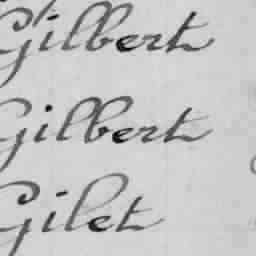 Gilbert
Gilbert
Gilet